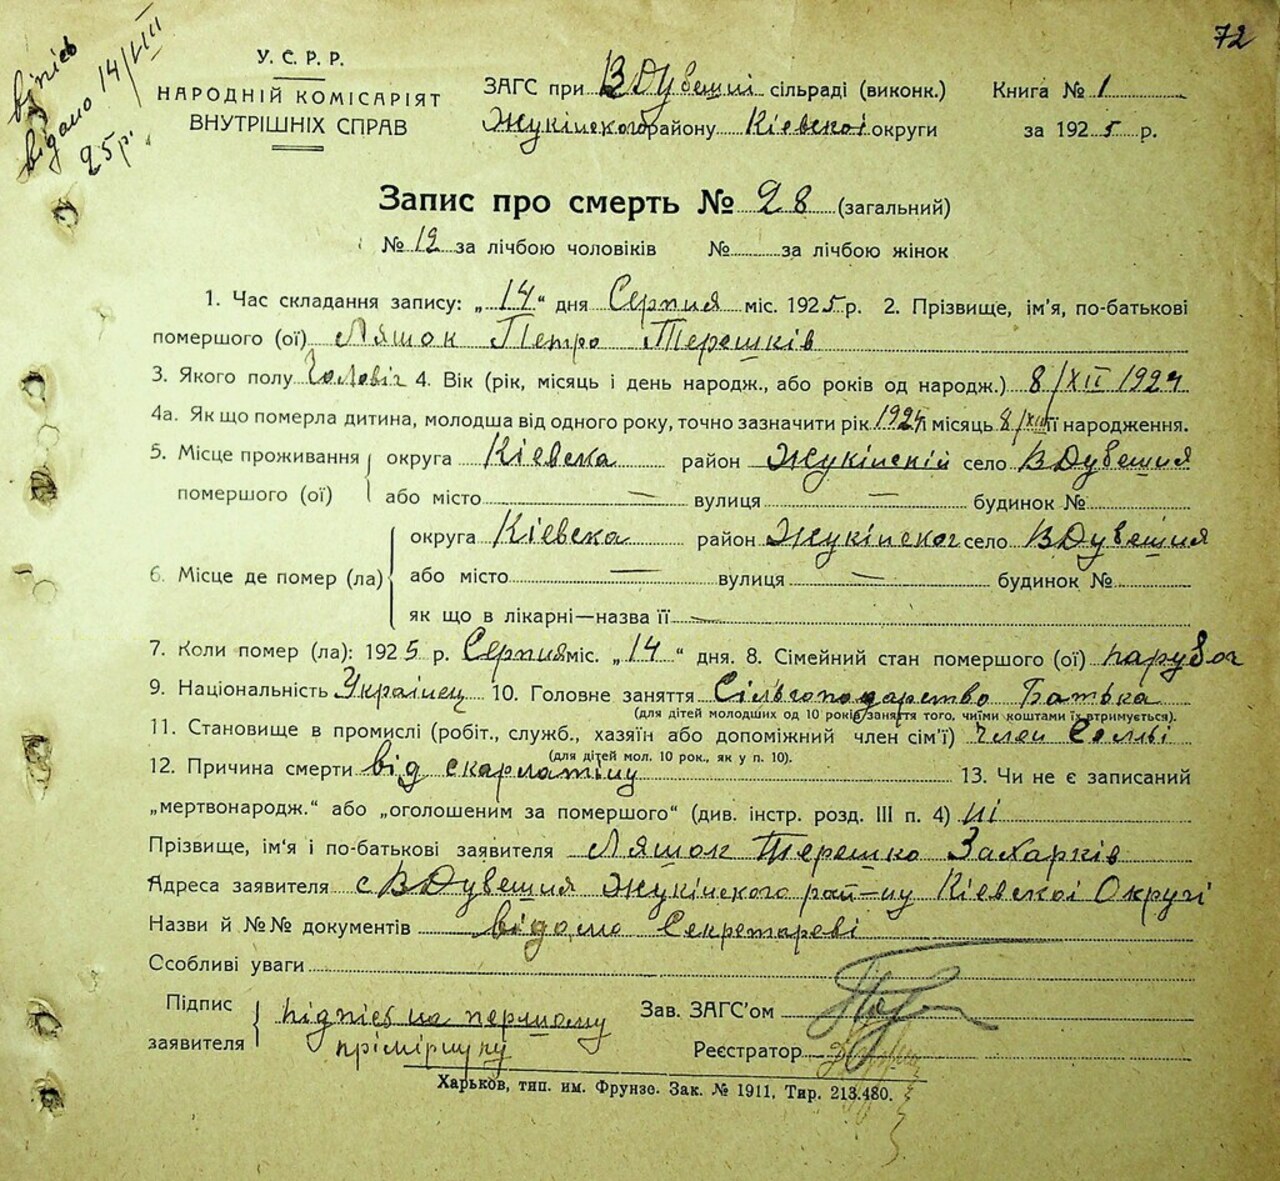 72
випіс
відано 14/VIII
25 р.
У. С. Р. Р.
НАРОДНІЙ КОМІСАРІЯТ
ВНУТРІШНІХ СПРАВ
ЗАГС при В Дубешні сільраді (виконк.) Книга № 1
Жукінского району Кіевскоі округи за 1925 р.
Запис про смерть № 28 (загальний)
№ 12 за лічбою чоловіків № за лічбою жінок
1. Час складання запису: „14“ дня Серпня міс. 1925 р. 2. Прізвище, ім'я, по-батькові
помершого (ої) Ляшок Петро Терешків
3. Якого полу Чоловіч 4. Вік (рік, місяць і день народж., або років од народж.) 8/XII 1924
4а. Як що померла дитина, молодша від одного року, точно зазначити рік 1924 і місяць 8/XII її народження.
5. Місце проживання округа Кіевска район Жукінскій село В Дубешня
помершого (ої) або місто — вулиця — будинок №
округа Кіевска район Жукінског село В Дубешня
6. Місце де помер (ла) або місто — вулиця — будинок №
як що в лікарні—назва її —
7. Коли помер (ла): 1925 р. Серпня міс. „14“ дня. 8. Сімейний стан помершого (ої) парубок
9. Національність Украінец 10. Головне заняття Сільгоподарство Батька
(для дітей молодших од 10 років заняття того, чиїми коштами їх втримується).
11. Становище в промислі (робіт., служб., хазяїн або допоміжний член сім'ї) Член Семьі
(для дітей мол. 10 рок., як у п. 10).
12. Причина смерти від скарлатіну 13. Чи не є записаний
„мертвонародж.“ або „оголошеним за помершого“ (див. інстр. розд. III п. 4) ні
Прізвище, ім'я і по-батькові заявителя Ляшок Терешко Захарків
Адреса заявителя с В Дубешня Жукінского рай-ну Кіевскоі Округі
Назви й №№ документів відомо Секретареві
Особливі уваги
Підпис
заявителя підпіс на першому
прімірнику
Зав. ЗАГС'ом
Реєстратор
Харьков, тип. им. Фрунзе. Зак. № 1911, Тир. 213.480.